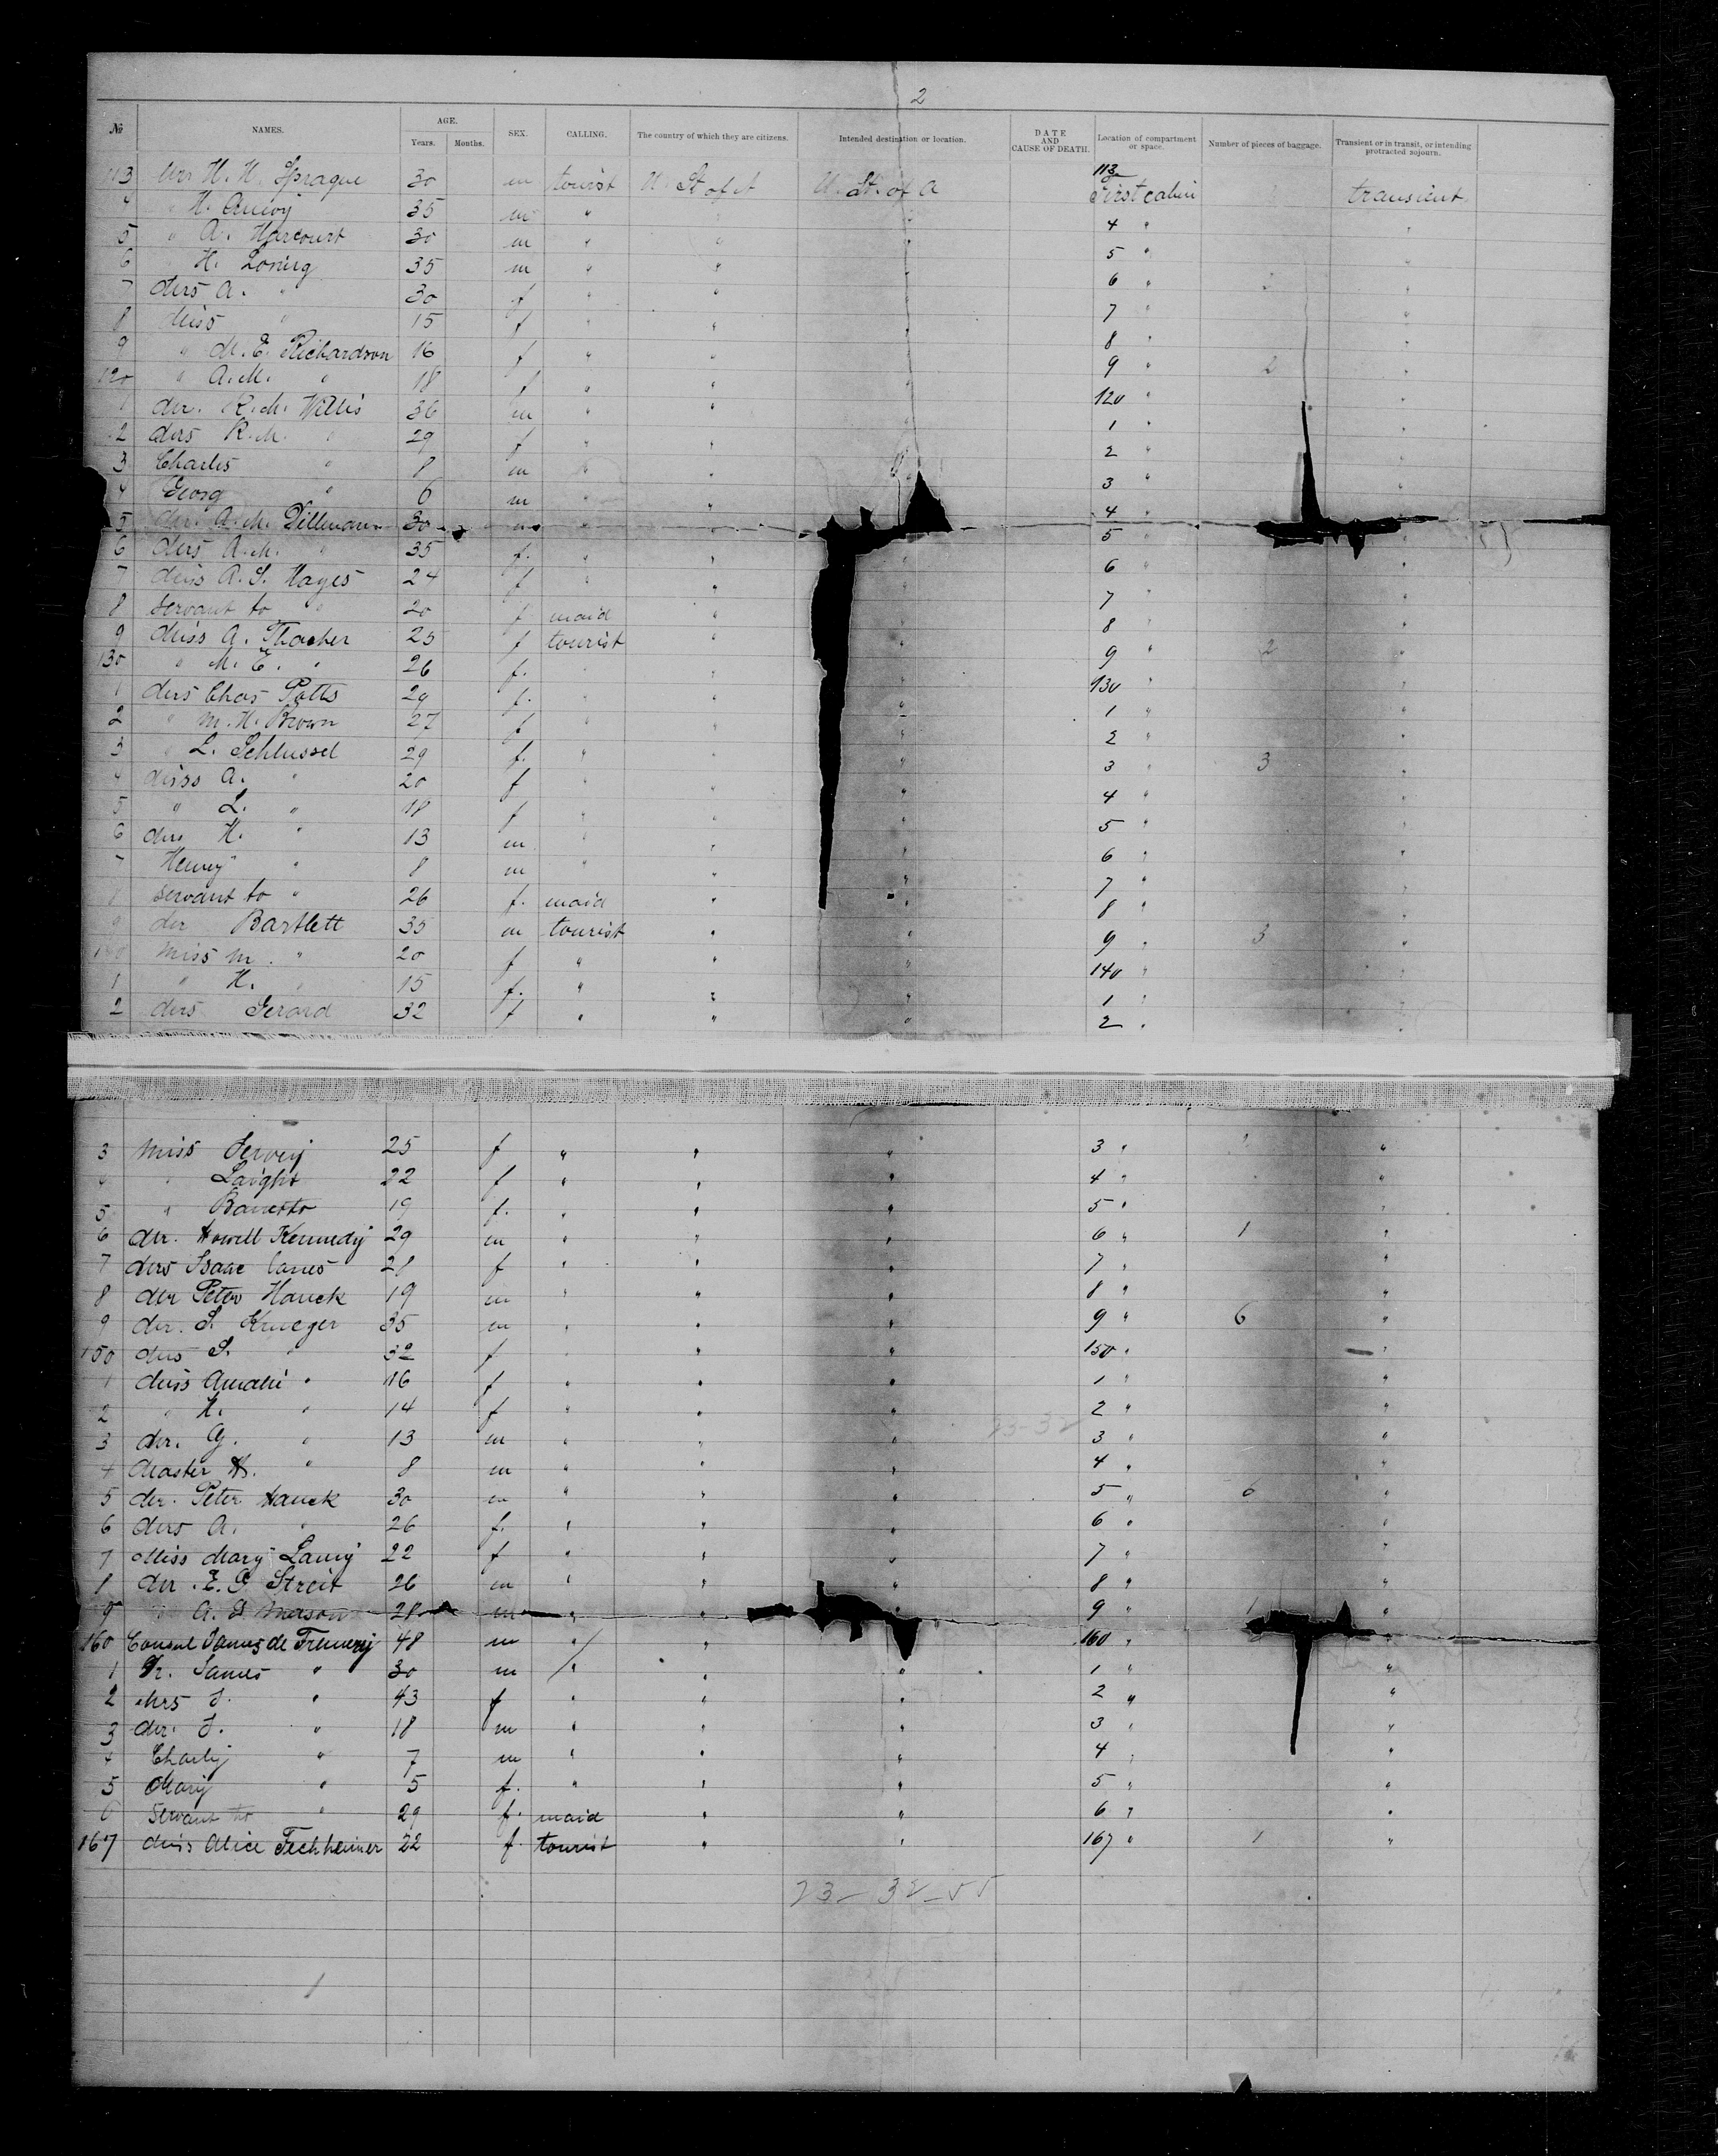 2
№ NAMES. AGE. Years. Months. SEX. CALLING. The country of which they are citizens. Intended destination or location. DATE AND CAUSE OF DEATH. Location of compartment or space. Number of pieces of baggage. Transient or in transit, or intending protracted sojourn.
113 Mr. H. H. Sprague 30 m tourist U. St of A U. St. of A 113 First cabin transient
4 " H. Amory 35 m " " " 4 " "
5 " A. Harcourt 30 m " " " 5 " "
6 " H. Loring 35 m " " " 6 " "
7 Mrs A. " 30 f " " " 7 " "
8 Miss " 15 f " " " 8 " "
9 " M. E. Richardson 16 f " " " 9 " 2 "
120 " A. M. " 18 f " " " 120 " "
1 Mr. R. M. Willis 36 m " " " 1 " "
2 Mrs R. M. " 29 f " " " 2 " "
3 Charles " 8 m " " " 3 " "
4 Georg " 6 m " " " 4 " "
5 Mr. A. M. Dillmann 30 m " " 5 " "
6 Mrs A. M. " 35 f. " " " 6 " "
7 Miss A. S. Hayes 24 f " " " 7 " "
8 Servant to " 20 f maid " " 8 " "
9 Miss A. Thacher 25 f tourist " " 9 " 2 "
130 " M. E. " 26 f. " " " 130 " "
1 Mrs Chas Potts 29 f. " " " 1 " "
2 " M. H. Brown 27 f " " " 2 " "
3 " L. Schlussel 29 f. " " " 3 " 3 "
4 Miss A. " 20 f " " " 4 " "
5 " L. " 18 f " " " 5 " "
6 H. " 13 m " " " 6 " "
7 Henry " 8 m " " " 7 " "
8 Servant to " 26 f. maid " " 8 " "
9 Mr Bartlett 35 m tourist " " 9 " 3 "
140 Miss M. " 20 f " " " 140 " "
1 " H. " 15 f. " " " 1 " "
2 Mrs Gerard 32 f " " " 2 " "
3 Miss 25 f " " " 3 " 1 "
4 " Laight 22 f " " " 4 " "
5 " 19 f. " " " 5 " "
6 Mr. Howell Kennedy 29 m " " " 6 " 1 "
7 Mrs Isaac 28 f " " " 7 " "
8 Mr Peter Hauck 19 m " " " 8 " "
9 Mr. S. Krueger 35 m " " " 9 " 6 "
150 Mrs S. " 32 f " " " 150 " "
1 Miss Amalie " 16 f " " " 1 " "
2 " H. " 14 f " " " 2 " "
3 Mr. G. " 13 m " " " 23-32 3 " "
4 Master H. " 8 m " " " 4 " "
5 Mr. Peter Hauck 30 m " " " 5 " 6 "
6 Mrs A. " 26 f. " " " 6 " "
7 Miss Mary Lamy 22 f " " " 7 " "
8 Mr. E. G. Streit 26 m " " " 8 " "
9 " A. D. 28 m " " " 9 " 1 "
160 Consul James de Fremery 48 m " " 160 " "
1 Jr. James " 30 m " " " 1 " "
2 Mrs J. " 43 f " " " 2 " "
3 Mr. J. " 18 m " " " 3 " "
4 Charly " 7 m " " " 4 " "
5 Mary " 5 f. " " " 5 " "
6 Servant to " 29 f. maid " " 6 " "
167 Miss Alice Fechheimer 22 f. tourist " " 167 " 1 "
23-32-55